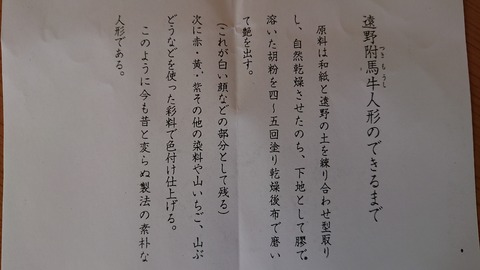 遠野附馬牛人形のできるまで
つきもうし
原料は和紙と遠野の土を練り合わせ型取り
し、自然乾燥させたのち、下地として膠で
溶いた胡粉を四〜五回塗り乾燥後布で磨い
て艶を出す。
(これが白い顔などの部分として残る)
次に赤・黄・紫その他の染料や山いちご、山ぶ
どうなどを使った彩料で色付け仕上げる。
このように今も昔と変らぬ製法の素朴な
人形である。